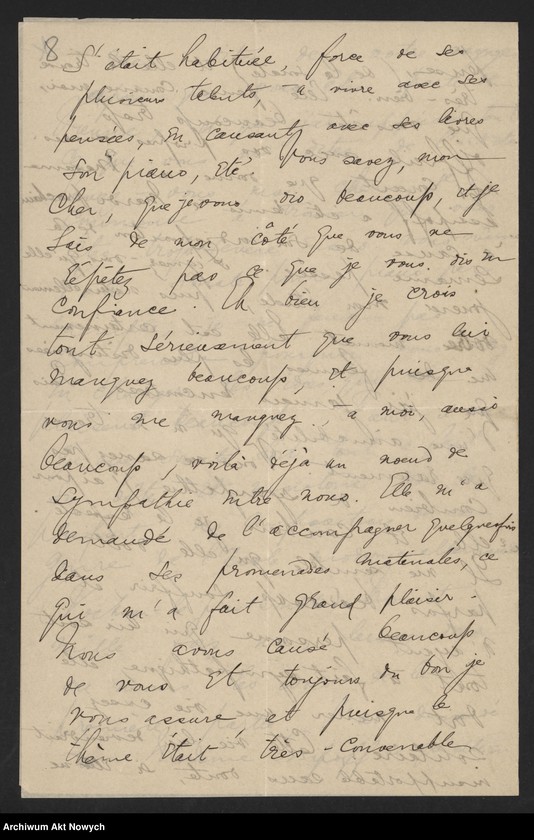 8
S'était habituée, force de ses
plusieurs talents, à vivre avec ses
pensées, en causant avec ses livres
son piano, etc. Vous savez, mon
Cher, que je vous dis beaucoup, et je
sais de mon côté que vous ne
répétez pas ce que je vous dis en
confiance. Eh bien je crois
tout sérieusement que vous lui
manquez beaucoup, et puisque
vous me manquez, à moi, aussi
beaucoup, voilà déjà un noeud de
sympathie entre nous. Elle m'a
demandé de l'accompagner quelquefois
dans ses promenades matinales, ce
qui m'a fait grand plaisir.
Nous avons causé beaucoup
de vous et toujours du bon je
vous assure, et puisque le
thème était très-convenable
Archiwum Akt Nowych